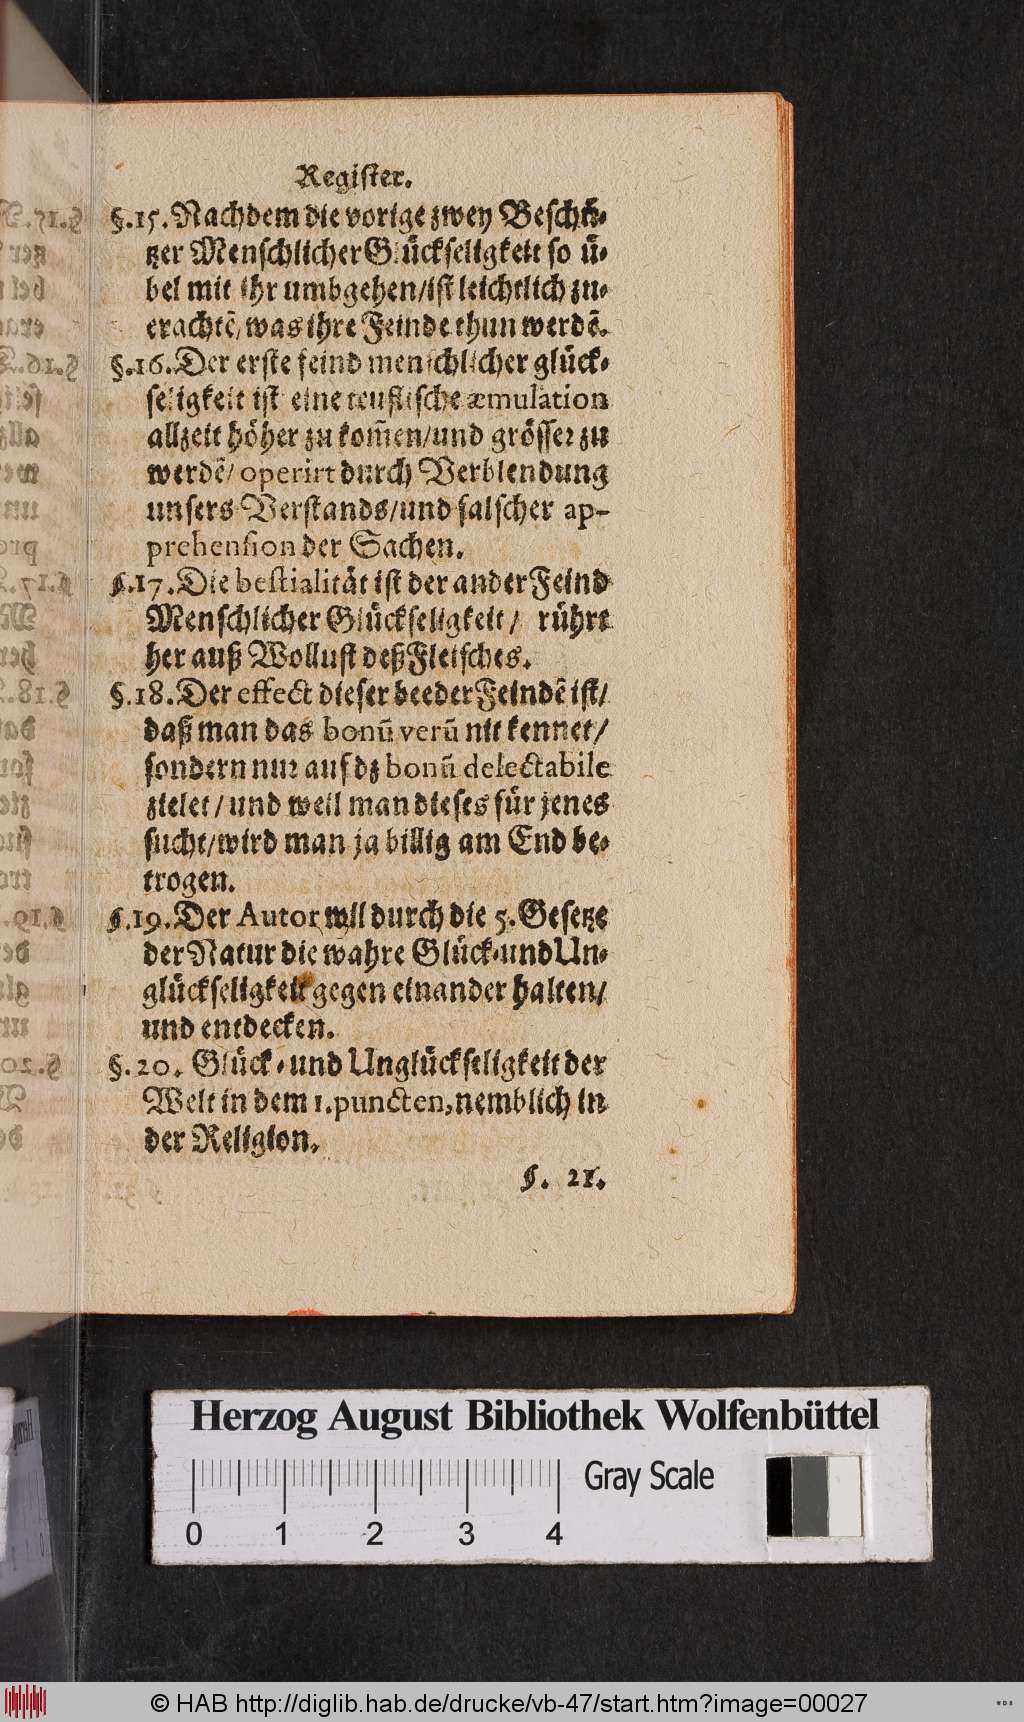 Register.
§.15. Nachdem die vorige zwey Beschü-
tzer Menschlicher Glückseligkeit so ü-
bel mit ihr umbgehen/ist leichtlich zu-
erachtẽ/was ihre Feinde thun werdẽ.
§.16. Der erste feind menschlicher glück-
seligkeit ist eine teuflische æmulation
allzeit höher zu kom̃en/und grösser zu
werdẽ/operirt durch Verblendung
unsers Verstands/und falscher ap-
prehension der Sachen.
§.17. Die bestialität ist der ander Feind
Menschlicher Glückseligkeit/ rührt
her auß Wollust deß Fleisches.
§.18. Der effect dieser beeder Feindẽ ist/
daß man das bonũ verũ nit kennet/
sondern nur auf dz bonũ delectabile
zielet/und weil man dieses für jenes
sucht/wird man ja billig am End be-
trogen.
§.19. Der Autor will durch die 5. Gesetze
der Natur die wahre Glück-und Un-
glückseligkeit gegen einander halten/
und entdecken.
§.20. Glück-und Unglückseligkeit der
Welt in dem 1. puncten, nemblich in
der Religion.
§. 21.
Herzog August Bibliothek Wolfenbüttel
Gray Scale
0 1 2 3 4
© HAB http://diglib.hab.de/drucke/vb-47/start.htm?image=00027